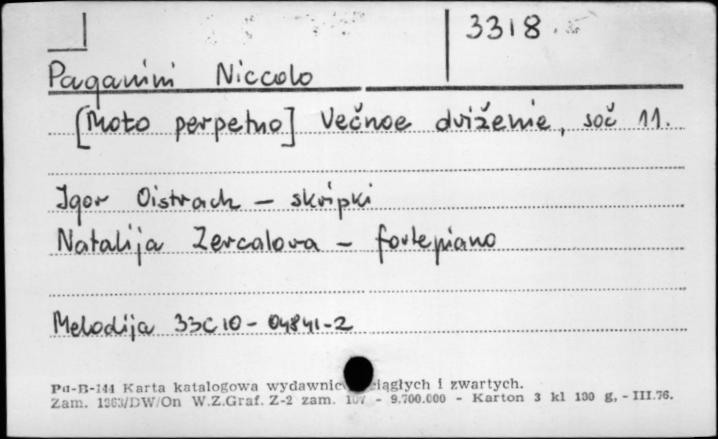 3318
Paganini Niccolo
[Moto perpetuo] Večnoe dviženie, soč 11.
Igor Oistrach - skripki
Natalija Zercalova - fortepiano
Melodija 33C 10 - 04841-2
Pu-B-144 Karta katalogowa wydawnic ciągłych i zwartych.
Zam. 1363/DW/On W.Z.Graf. Z-2 zam. 107 - 9.700.000 - Karton 3 kl 190 g, - III.76.